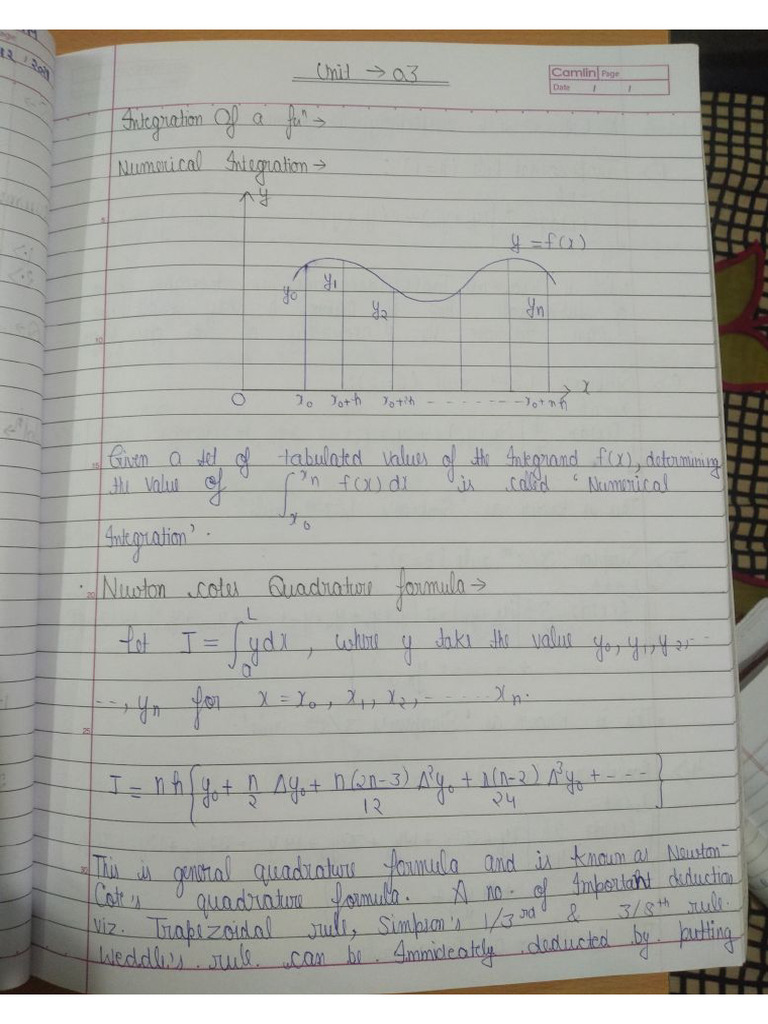 Unit → 03
Camlin Page
Date / /
Integration Of a fuⁿ →
Numerical Integration →
y
y = f(x)
y₀ y₁ y₂ yn
O x₀ x₀+h x₀+2h - - - - - - - x₀+nh x
Given a set of tabulated values of the Integrand f(x), determining
the value of ∫_{x₀}^{xn} f(x) dx is called 'Numerical
Integration'.
Newton cotes Quadrature formula →
Let I = ∫_a^L y dx, where y take the value y₀, y₁, y₂, - -
- -, yn for x = x₀, x₁, x₂, - - - - - xn.
I = nh { y₀ + n/2 Δy₀ + n(2n-3)/12 Δ²y₀ + n(n-2)/24 Δ³y₀ + - - - }
This is general quadrature formula and is known as Newton-
Cote's quadrature formula. A no. of Important deduction
viz. Trapezoidal rule, Simpson's 1/3rd & 3/8th rule.
Weddle's rule can be deducted by putting